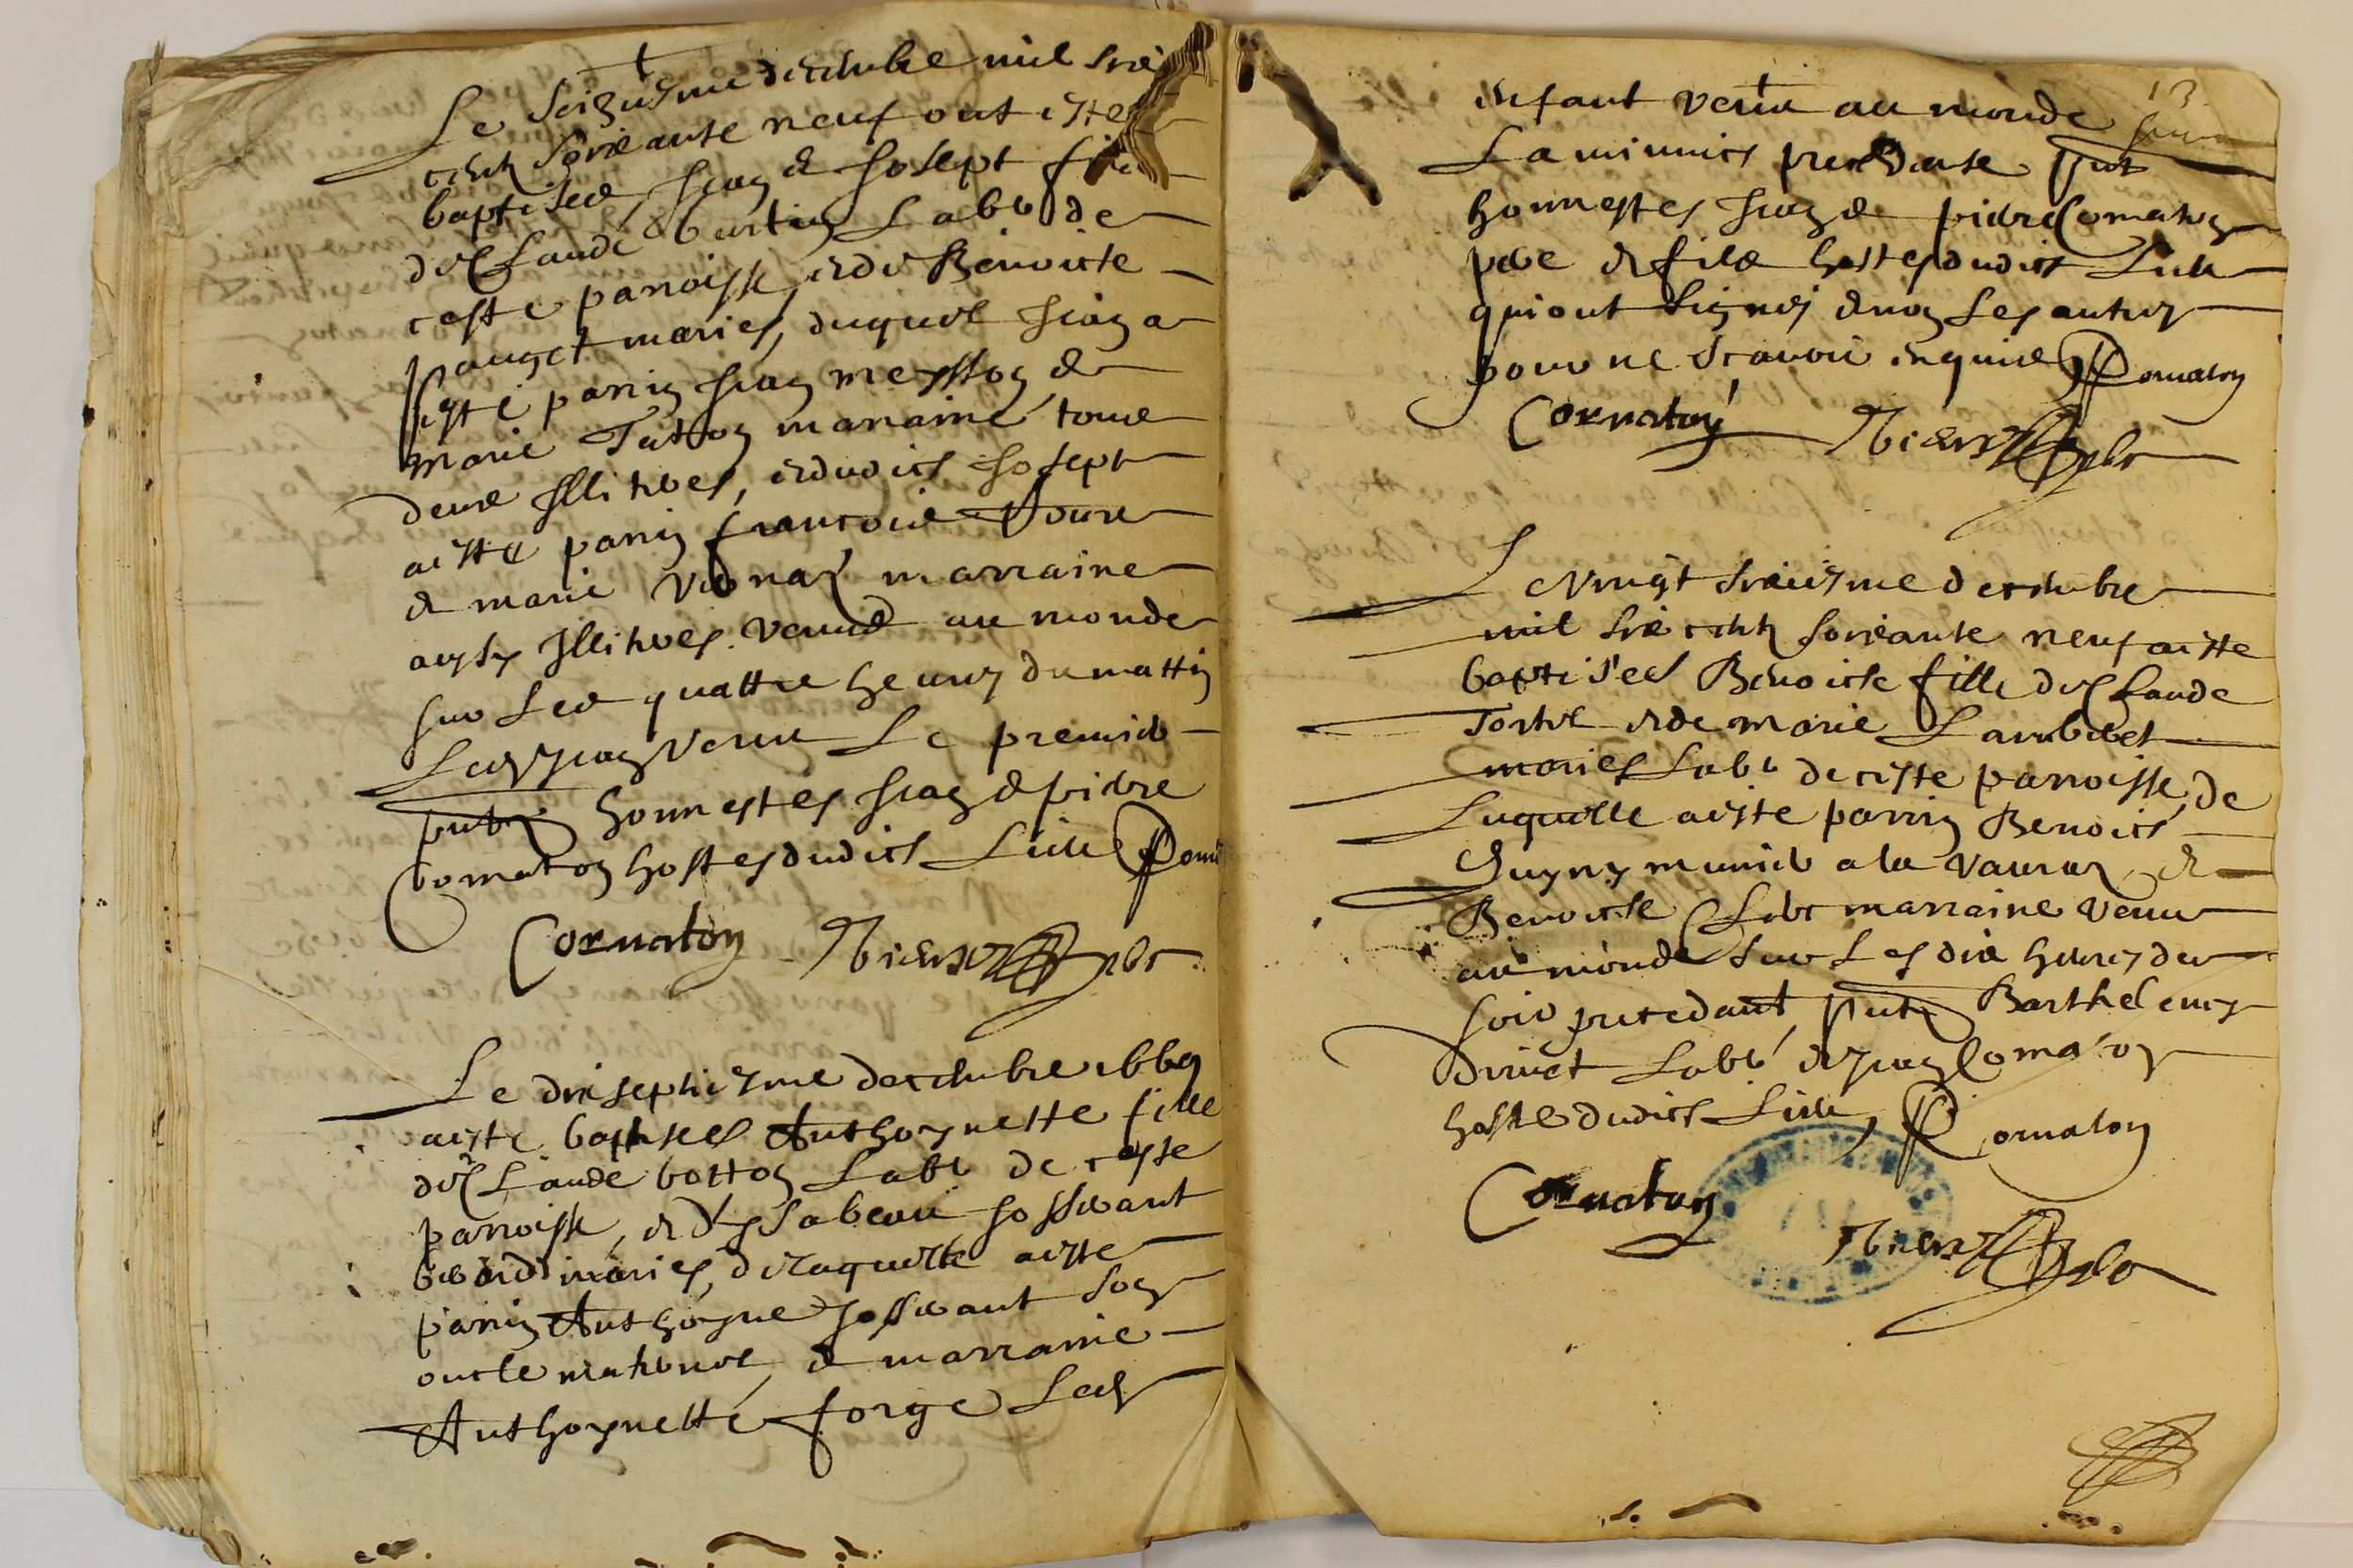 Le seiziesme decembre mil six
cent soixante neuf ont este
baptises Jean & Josept fils
de Claude bertin Labr de
ceste parroisse, et de Benoiste
pauget maries, duquel Jean a
este parrin Jean meysson &
marie marraine tous
deux Illiteres, et dudict Josept
a este parrin francois
& marie marraine
aussy Illiteres. venus au monde
sur Les quattre heures du mattin
Ledit Jean venu Le premier
pntz honnestes Jean & pierre
Cornaton hostes dudict Lieu
Cornaton
Le dixseptiesme decembre 1669
a este baptisee Anthoynette fille
de Claude botton Labr de ceste
parroisse, et dysabeau Josserant
maries, de laquelle a este
parrin Anthoyne Josserant son
oncle maternel, & marraine
Anthoynette forge Led
13
enfant venu au monde sur
La minuict precedante pnt
honnestes Jean & pierre Cornaton
pere et fils hostes dudict Lieu
qui ont signes & non Les autres
pour ne scavoir enquis Cornaton
Cornaton
Le vingt sixiesme decembre
mil six cent soixante neuf a este
baptisee Benoiste fille de Claude
et de marie Lambert
maries Labr de ceste parroisse, de
Laquelle a este parrin Benoict
Guyny munier a la &
Benoiste marraine venue
au monde sur Les dix heures du
soir precedant, pntz Barthelemy
Labr et Jean Cornaton
hoste dudict Lieu, Cornaton
Cornaton